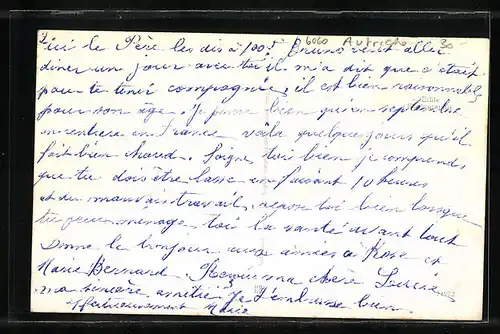 6060 Autriche 30-
ici le Père les dis à 1005 Bruno veut aller
diner un jour avec toi il m'a dit que c'était
pour te tenir compagnie, il est bien raisonnable
pour son âge. Je pense bien qu'en septembre
on rentrera en France voila quelques jours qu'il
fait bien chaud. Soigne toi bien je comprends
que tu dois être lasse en faisant 10 heures
et du mauvais travail, repose toi bien lorsque
tu peux menage toi la santé avant tout
donne le bonjour aux amies à Rose et
Marie Bernard. Reçois ma chère Lucie
ma sincère amitié Je t'embrasse bien
affectueusement Marie